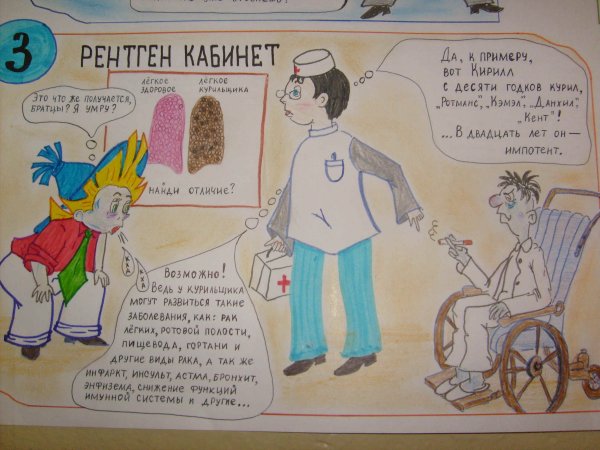 3
РЕНТГЕН КАБИНЕТ
ЛЁГКОЕ
ЗДОРОВОЕ
ЛЁГКОЕ
КУРИЛЬЩИКА
НАЙДИ ОТЛИЧИЕ?
ЭТО ЧТО ЖЕ ПОЛУЧАЕТСЯ,
БРАТЦЫ? Я УМРУ?
КХА
КХА
ВОЗМОЖНО!
ВЕДЬ У КУРИЛЬЩИКА
МОГУТ РАЗВИТЬСЯ ТАКИЕ
ЗАБОЛЕВАНИЯ, КАК: РАК
ЛЁГКИХ, РОТОВОЙ ПОЛОСТИ,
ПИЩЕВОДА, ГОРТАНИ И
ДРУГИЕ ВИДЫ РАКА, А ТАК ЖЕ
ИНФАРКТ, ИНСУЛЬТ, АСТМА, БРОНХИТ,
ЭНФИЗЕМА, СНИЖЕНИЕ ФУНКЦИЙ
ИМУННОЙ СИСТЕМЫ И ДРУГИЕ...
ДА, К ПРИМЕРУ,
ВОТ КИРИЛЛ
С ДЕСЯТИ ГОДКОВ КУРИЛ,
„РОТМАНС", „КЭМЭЛ", „ДАНХИЛ",
„КЕНТ"!
...В ДВАДЦАТЬ ЛЕТ ОН —
ИМПОТЕНТ.